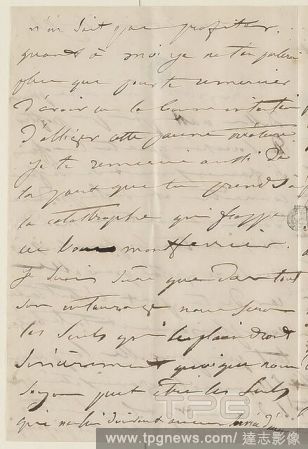 n'en soit que profiter.
quant à moi je ne t'en parlerai
plus que pour te remercier
d'avoir eu la bonne intention
d'obliger cette jeune
je te remercie aussi de
la part que tu prends à
la catastrophe qui frappe
ce bon montferrier.
je suis sûre que dans tout
son entourage nous serons
les seuls qui le plaindront
sincèrement quoique nous
soyons peut être les seuls
qui ne lui doivent aucun
TPG
www.tpgnews.com/達志影像